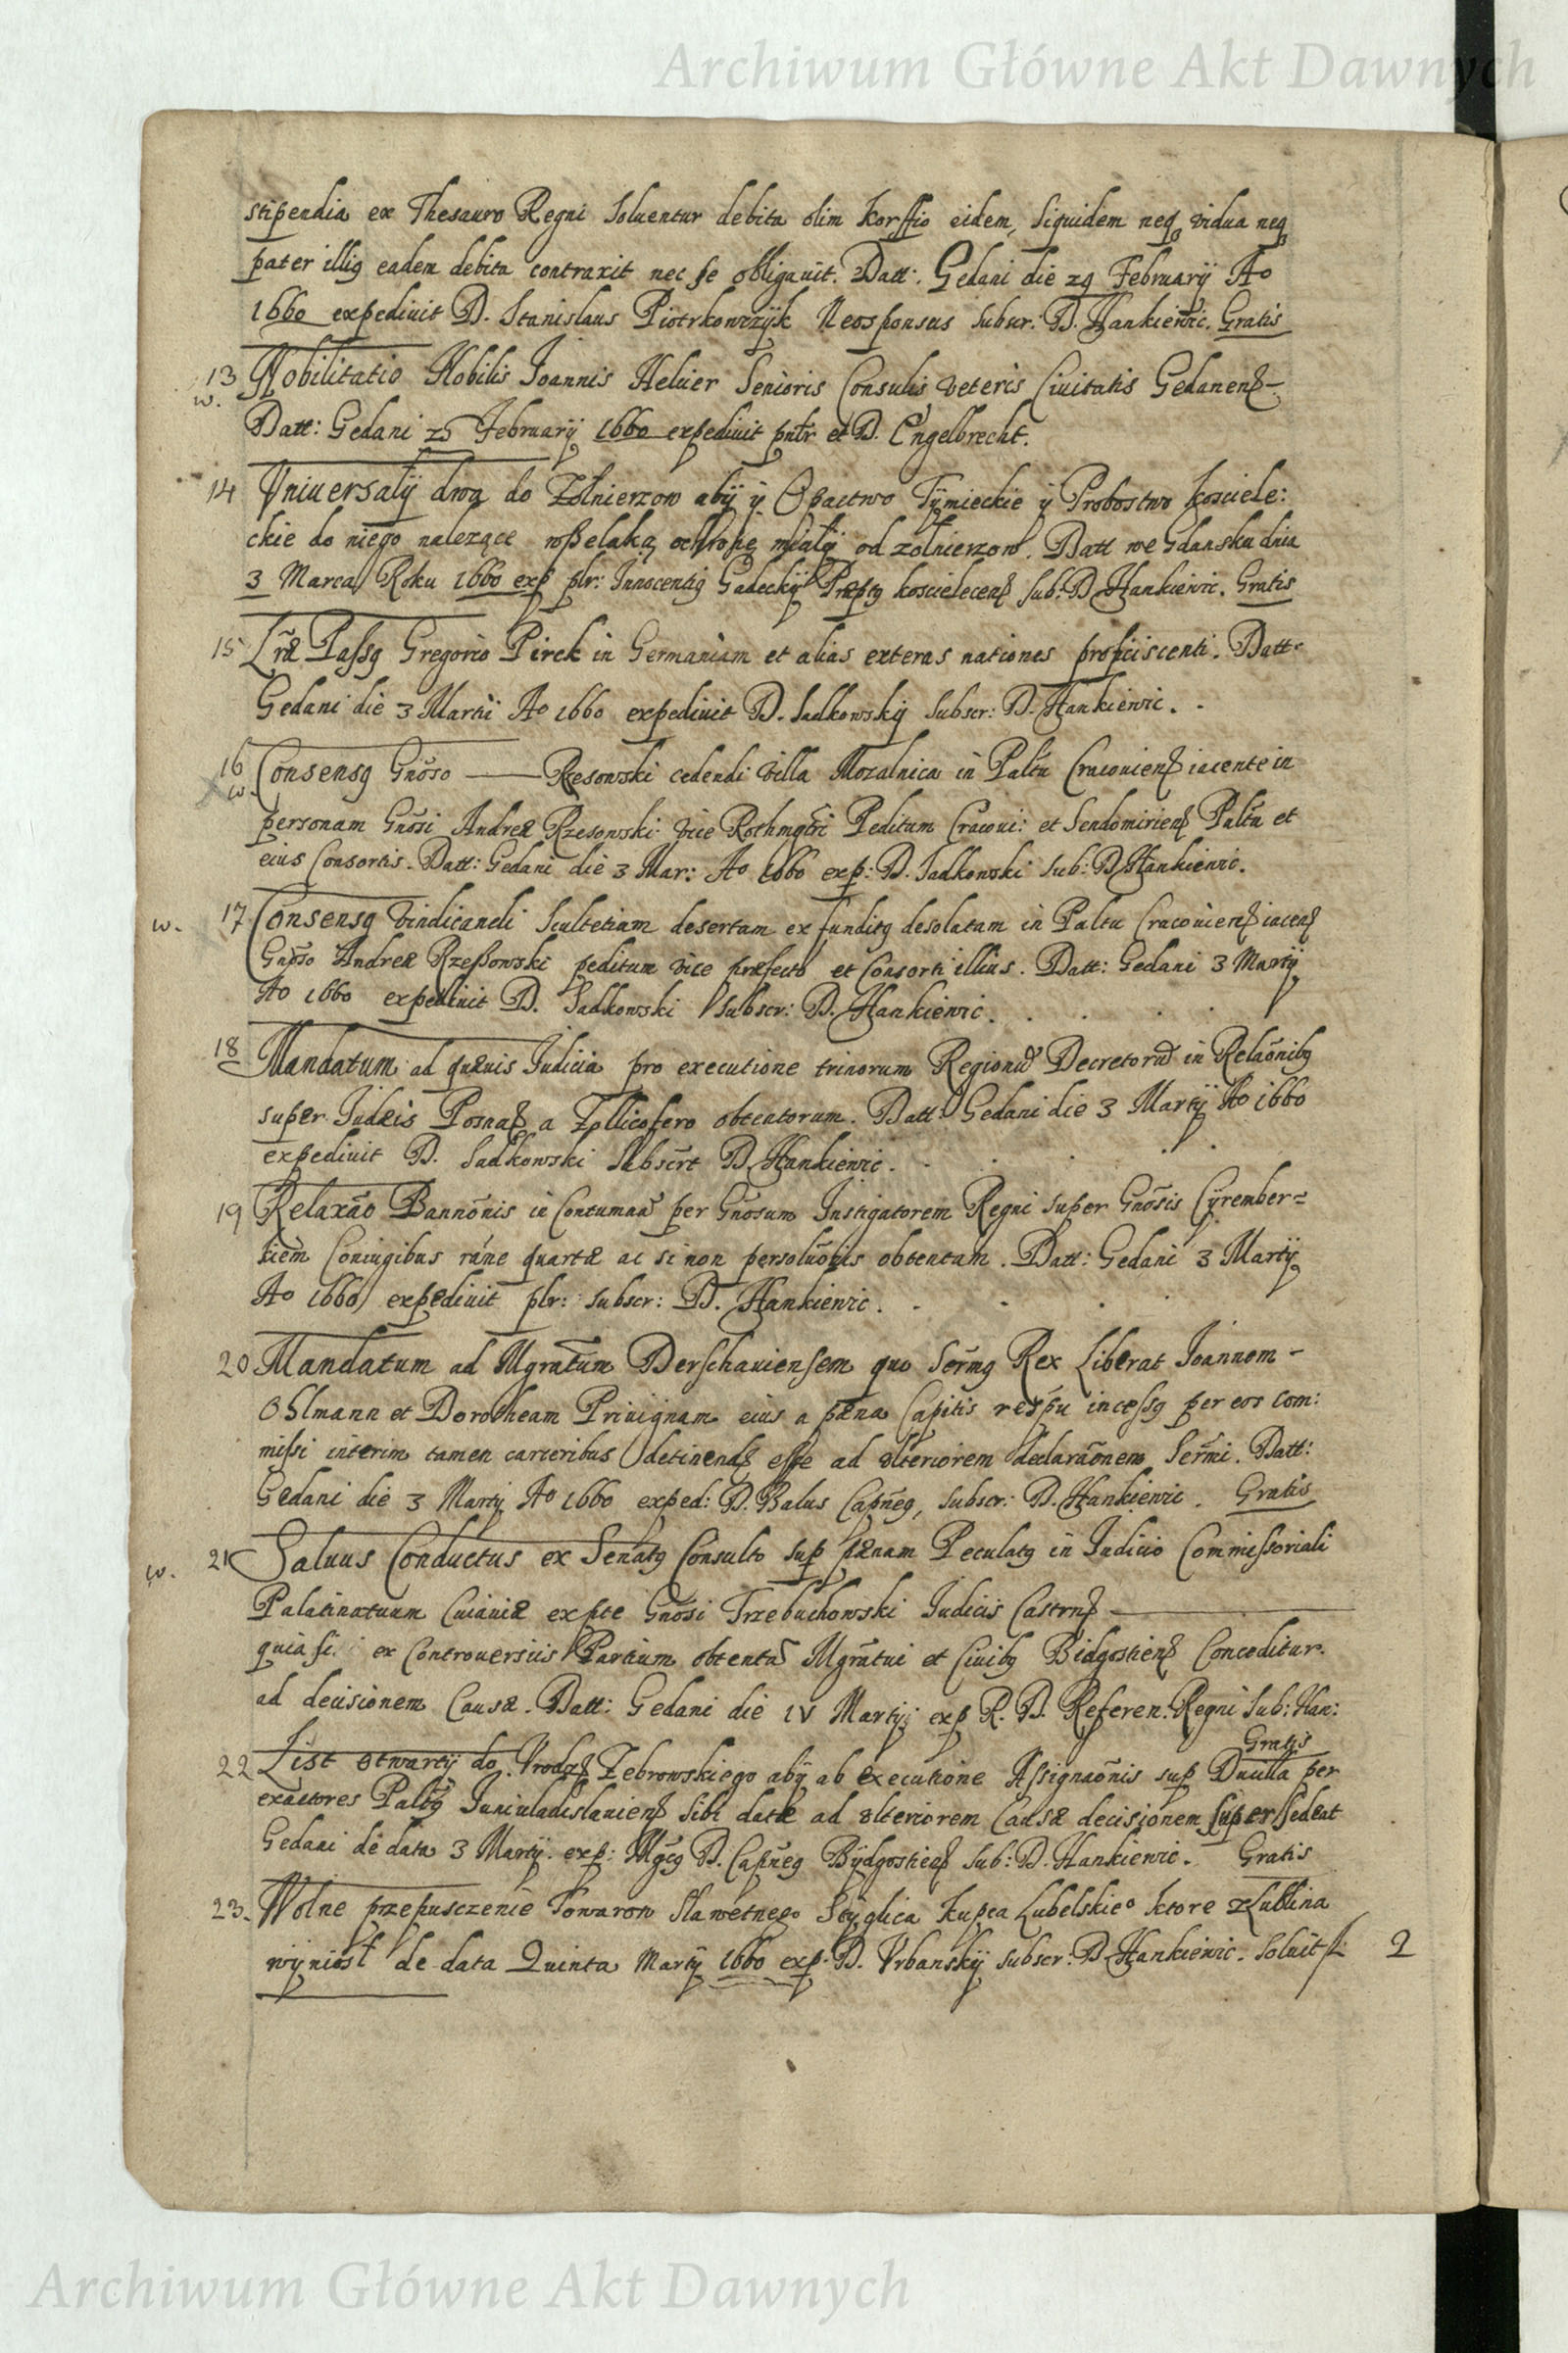 Archiwum Główne Akt Dawnych
stipendia ex Thesauro Regni soluentur debita olim Korffio eidem, siquidem neq vidua neq
pater illig eadem debita contraxit nec se obligauit. Datt: Gedani die 29 February Ao
1660 expediuit D. Stanislaus Piotrkowczyk Neosponsus subscr: D. Hankiewic. Gratis
13 Nobilitatio Nobilis Joannis Heluer Senioris Consulis veteris Ciuitatis Gedanens–
w.
Datt: Gedani 25 February 1660 expediuit pntr et D. Engelbrecht.
14 Vniuersalÿ dwa do Zolnierzow abÿ ÿ Opactwo Tÿnieckie ÿ Probostwo kosciele:
ckie do niego nalezące wszelaką ochronę miałÿ od zolnierzow. Datt we Gdansku dnia
3 Marca Roku 1660 exp plr: Innocentig Gadeckÿ Præptg koscielecens sub: D Hankiewic. Gratis
15 Lræ Passg Gregorio Pirck in Germaniam et alias exteras nationes proficiscenti. Datt:
Gedani die 3 Martii Ao 1660 expediuit D. Sadkowskÿ Subscr: D. Hankiewic. .
16 Consensg Gnoso —— Rzesowski cedendi villa Mozalnica in Paltu Cracouiens iacente in
w.
personam Gnosi Andreæ Rzesowski vice Rothmgtri Peditum Cracoui: et Sendomiriens Paltu et
eius Consortis. Datt: Gedani die 3 Mar: Ao 1660 exp: D. Sadkowski Sub: D Hankiewic.
w. 17 Consensg vindicandi Scultetiam desertam ex funditg desolatam in Paltu Cracouiens iacens
Gnoso Andreæ Rzessowski peditum vice præfecto et Consorti illius. Datt: Gedani 3 Martÿ
Ao 1660 expediuit D. Sadkowski subscr: D. Hankiewic.
18 Mandatum ad quæuis Judicia pro executione trinorum Regioru Decretoru in Relaonibg
super Judæis Posnas a Zollicofero obtentorum. Datt: Gedani die 3 Martÿ Ao 1660
expediuit D. Sadkowski Subscrt D. Hankiewic.
19 Relaxao Bannonis in Contumaa per Gnosum Instigatorem Regni super Gnosis Cÿrember=
kiem Coniugibus rane quartæ ac si non persoluonis obtentam. Datt: Gedani 3 Martÿ
Ao 1660 expediuit plr: subscr: D. Hankiewic.
20 Mandatum ad Mgratum Derschauiensem quo Sermg Rex Liberat Joannem –
Ohlmann et Dorotheam Priuignam eius a pæna Capitis respu incessg per eos com:
missi interim tamen carceribus detinends esse ad vlteriorem declaraonem Sermi. Datt:
Gedani die 3 Martÿ Ao 1660 exped: D. Balus Capneg, subscr: D. Hankiewic. Gratis
w. 21 Saluus Conductus ex Senatg Consulto sup pænam Peculatg in Judicio Commissoriali
Palatinatuum Cuiauiæ ex pte Gnosi Trzebuchowski Judicis Castrns
quiasi ex Controuersiis Partium obtenta Mgratui et Ciuibg Bidgostiens Conceditur.
ad decisionem Causæ. Datt: Gedani die IV Martÿ exp R. D. Referen. Regni Sub: Han:
Gratis
22 List otwartÿ do Vrodz Zebrowskiego abÿ ab executione Assignaonis sup Duuilla per
exactores Paltg Juniuladislauiens sibi datæ ad vlteriorem Causæ decisionem supersedeat
Gedani de data 3 Martÿ. exp: Mgcg D. Capneg Bÿdgostiens sub: D. Hankiewic. Gratis
23. Wolne przepusczenie Towarow Slawetnego Stÿglica kupca Lubelskieo ktore z Lublina
wÿniosł de data Quinta Martÿ 1660 exp. D. Vrbanskÿ subscr: D Hankiewic. soluit fl: 2
Archiwum Główne Akt Dawnych